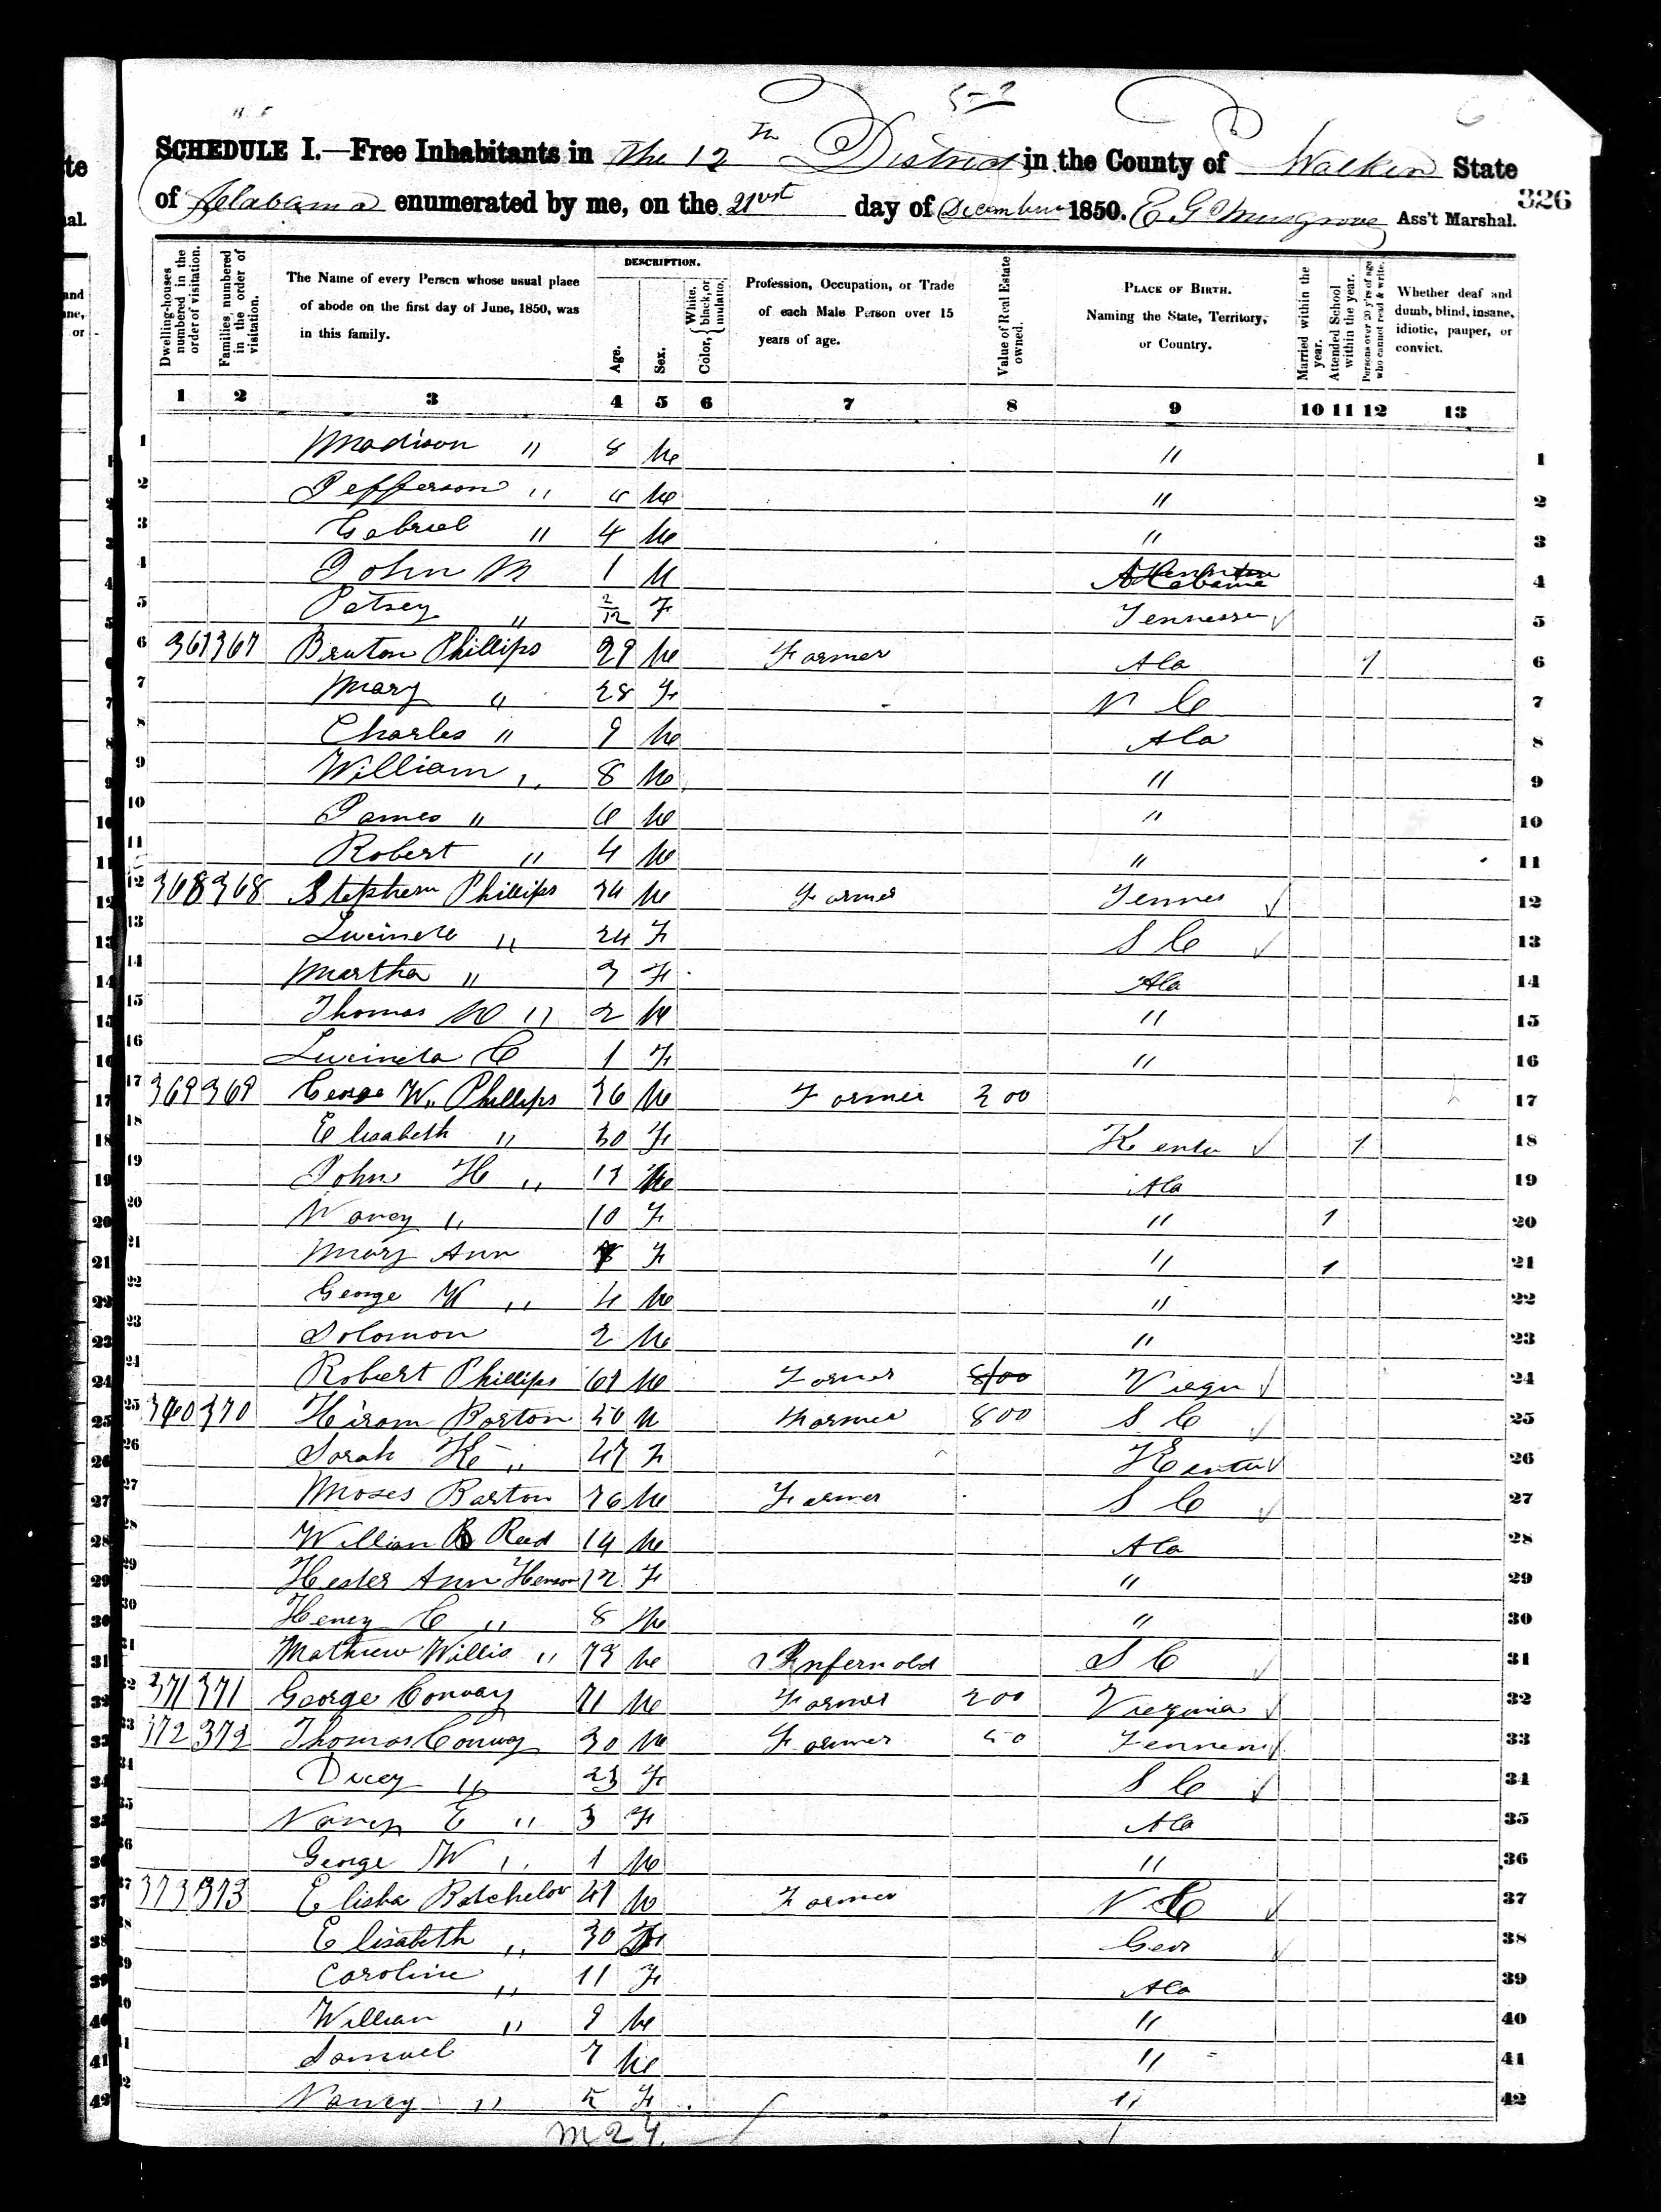 SCHEDULE I.—Free Inhabitants in The 12th District in the County of Walker State
of Alabama enumerated by me, on the 21st day of December 1850. E G Musgrove Ass't Marshal.
326
Dwelling-houses numbered in the order of visitation.
Families numbered in the order of visitation.
The Name of every Person whose usual place of abode on the first day of June, 1850, was in this family.
DESCRIPTION.
Age.
Sex.
Color, { White, black, or mulatto.
Profession, Occupation, or Trade of each Male Person over 15 years of age.
Value of Real Estate owned.
PLACE OF BIRTH. Naming the State, Territory, or Country.
Married within the year.
Attended School within the year.
Persons over 20 y'rs of age who cannot read & write.
Whether deaf and dumb, blind, insane, idiotic, pauper, or convict.
1 2 3 4 5 6 7 8 9 10 11 12 13
1 Madison " 8 M " 1
2 Jefferson " M " 2
3 Gabriel " 4 M " 3
4 John M 1 M Alabama 4
5 Patsey " 2/12 F Tennessee 5
6 367 367 Bruton Phillips 29 M Farmer Ala 1 6
7 Mary " 28 F N C 7
8 Charles " 9 M Ala 8
9 William " 8 M " 9
10 James " 6 M " 10
11 Robert " 4 M " 11
12 368 368 Stephen Phillips 24 M Farmer Tennes 12
13 Lucinda " 24 F S C 13
14 Martha " 3 F Ala 14
15 Thomas M " 2 M " 15
16 Lucinda C 1 F " 16
17 369 369 George W. Phillips 36 M Farmer 200 17
18 Elisabeth " 30 F Kentu 1 18
19 John H " 13 M Ala 19
20 Nancy " 10 F " 1 20
21 Mary Ann 8 F " 1 21
22 George W " 4 M " 22
23 Solomon 2 M " 23
24 Robert Phillips 67 M Farmer 800 Virgn 24
25 370 370 Hiram Barton 50 M Farmer 800 S C 25
26 Sarah K " 47 F Kentu 26
27 Moses Barton 76 M Farmer S C 27
28 William R Reed 14 M Ala 28
29 Hester Ann Henson 12 F " 29
30 Henry C " 8 M " 30
31 Mathew Willis " 73 M S C 31
32 371 371 George Conway 71 M Farmer 200 Virginia 32
33 372 372 Thomas Conway 30 M Farmer 50 Tennen 33
34 Dicey " 23 F S C 34
35 Nancy E " 3 F Ala 35
36 George W " 1 M " 36
37 373 373 Elisha Batchelor 47 M Farmer N C 37
38 Elisabeth " 30 F Geor 38
39 Caroline " 11 F Ala 39
40 William " 9 M " 40
41 Samuel 7 M " 41
42 Nancy " 5 F " 42
M 24